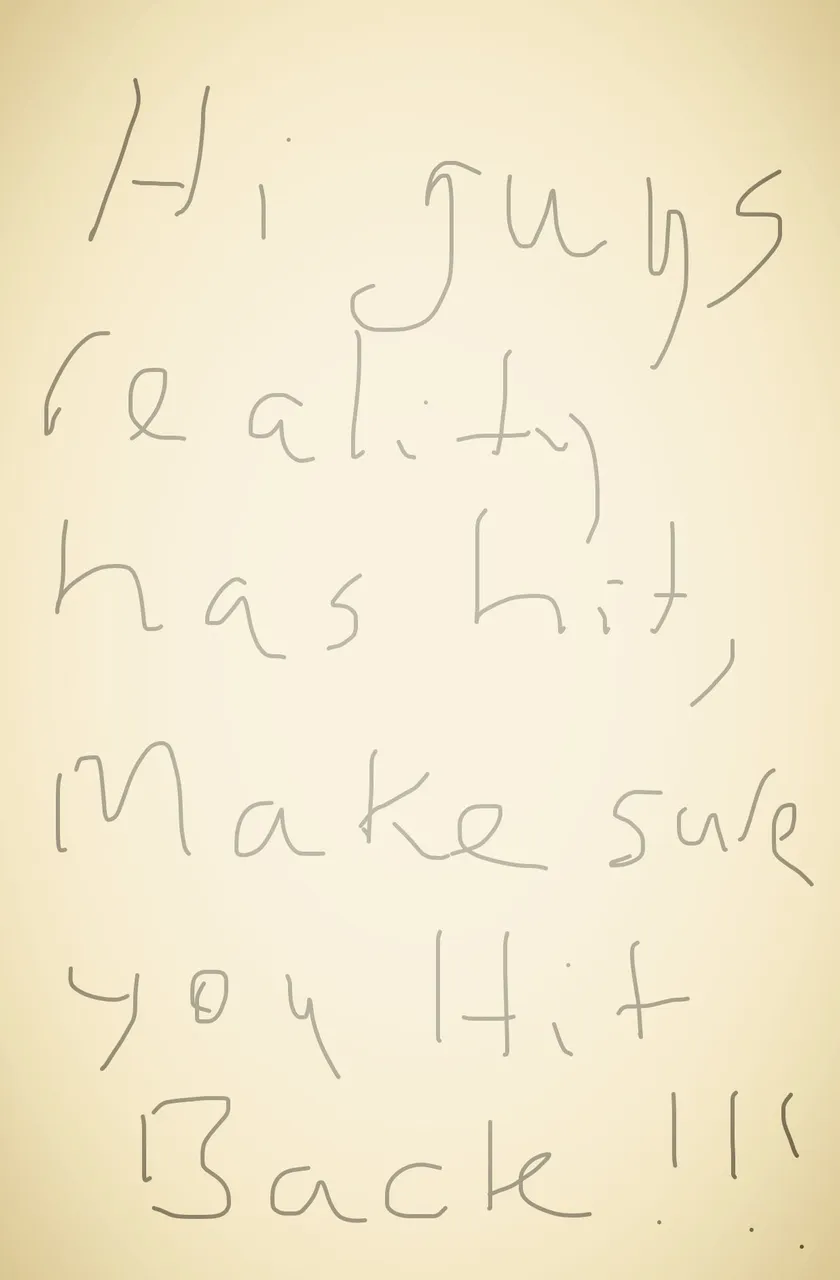 Hi guys
reality
has hit,
Make sure
you Hit
Back !!!